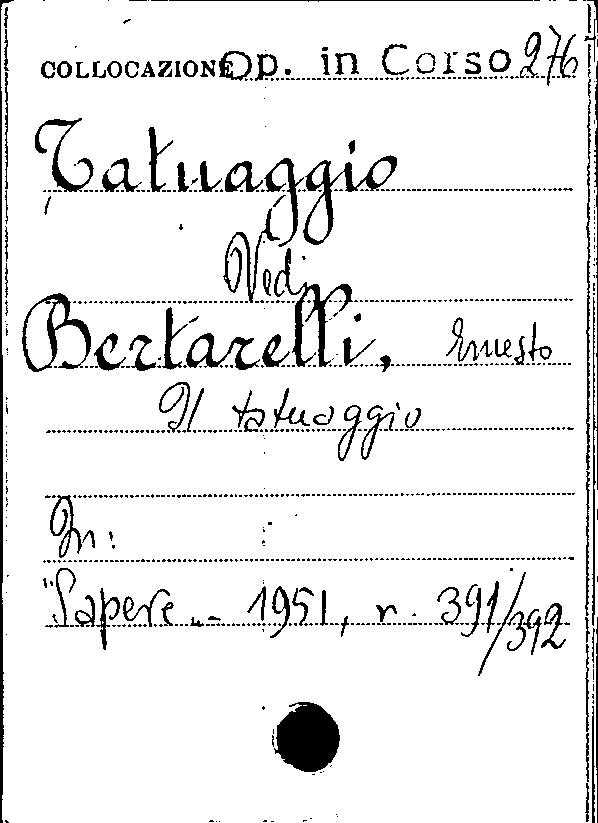 COLLOCAZIONE Op. in Corso 276
Tatuaggio
Vedi
Bertarelli, Ernesto
Il tatuaggio
In:
"Sapere„- 1951, n. 391/392